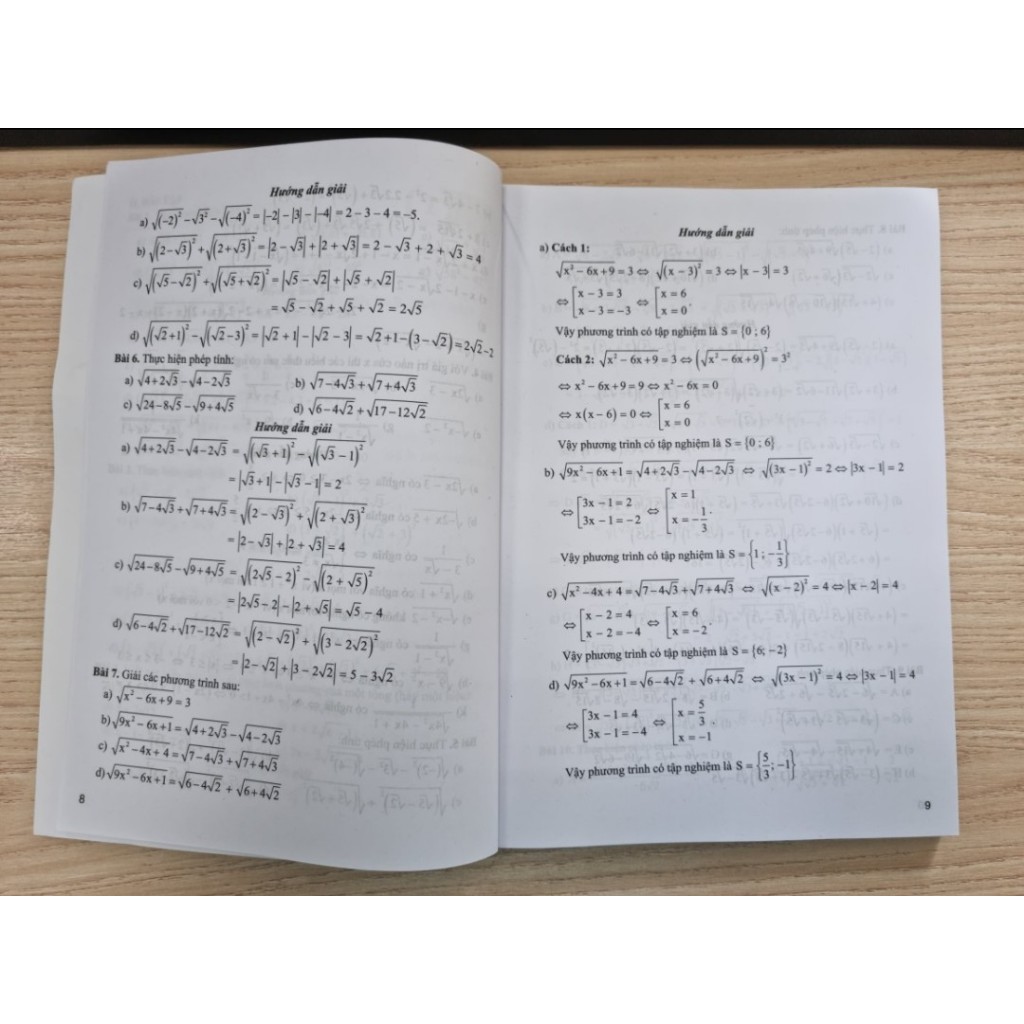 Hướng dẫn giải
a) √(−2)² − √3² − √(−4)² = |−2| − |3| − |−4| = 2 − 3 − 4 = −5.
b) √(2−√3)² + √(2+√3)² = |2 − √3| + |2 + √3| = 2 − √3 + 2 + √3 = 4
c) √(√5−√2)² + √(√5+√2)² = |√5 − √2| + |√5 + √2|
= √5 − √2 + √5 + √2 = 2√5
d) √(√2+1)² − √(√2−3)² = |√2 + 1| − |√2 − 3| = √2 + 1 − (3 − √2) = 2√2 − 2
Bài 6. Thực hiện phép tính:
a) √(4+2√3) − √(4−2√3) b) √(7−4√3) + √(7+4√3)
c) √(24−8√5) − √(9+4√5) d) √(6−4√2) + √(17−12√2)
Hướng dẫn giải
a) √(4+2√3) − √(4−2√3) = √(√3+1)² − √(√3−1)²
= |√3+1| − |√3−1| = 2
b) √(7−4√3) + √(7+4√3) = √(2−√3)² + √(2+√3)²
= |2−√3| + |2+√3| = 4
c) √(24−8√5) − √(9+4√5) = √(2√5−2)² − √(2+√5)²
= |2√5−2| − |2+√5| = √5 − 4
d) √(6−4√2) + √(17−12√2) = √(2−√2)² + √(3−2√2)²
= |2−√2| + |3−2√2| = 5 − 3√2
Bài 7. Giải các phương trình sau:
a) √(x² − 6x + 9) = 3
b) √(9x² − 6x + 1) = √(4+2√3) − √(4−2√3)
c) √(x² − 4x + 4) = √(7−4√3) + √(7+4√3)
d) √(9x² − 6x + 1) = √(6−4√2) + √(6+4√2)
8
Hướng dẫn giải
a) Cách 1:
√(x² − 6x + 9) = 3 ⇔ √(x − 3)² = 3 ⇔ |x − 3| = 3
⇔ [x − 3 = 3 ⇔ [x = 6
x − 3 = −3 x = 0.
Vậy phương trình có tập nghiệm là S = {0 ; 6}
Cách 2: √(x² − 6x + 9) = 3 ⇔ (√(x² − 6x + 9))² = 3²
⇔ x² − 6x + 9 = 9 ⇔ x² − 6x = 0
⇔ x(x − 6) = 0 ⇔ [x = 6
x = 0
Vậy phương trình có tập nghiệm là S = {0 ; 6}
b) √(9x² − 6x + 1) = √(4+2√3) − √(4−2√3) ⇔ √(3x − 1)² = 2 ⇔ |3x − 1| = 2
⇔ [3x − 1 = 2 ⇔ [x = 1
3x − 1 = −2 x = −1/3.
Vậy phương trình có tập nghiệm là S = {1 ; −1/3}
c) √(x² − 4x + 4) = √(7−4√3) + √(7+4√3) ⇔ √(x − 2)² = 4 ⇔ |x − 2| = 4
⇔ [x − 2 = 4 ⇔ [x = 6
x − 2 = −4 x = −2.
Vậy phương trình có tập nghiệm là S = {6; −2}
d) √(9x² − 6x + 1) = √(6−4√2) + √(6+4√2) ⇔ √(3x − 1)² = 4 ⇔ |3x − 1| = 4
⇔ [3x − 1 = 4 ⇔ [x = 5/3
3x − 1 = −4 x = −1.
Vậy phương trình có tập nghiệm là S = {5/3; −1}
9